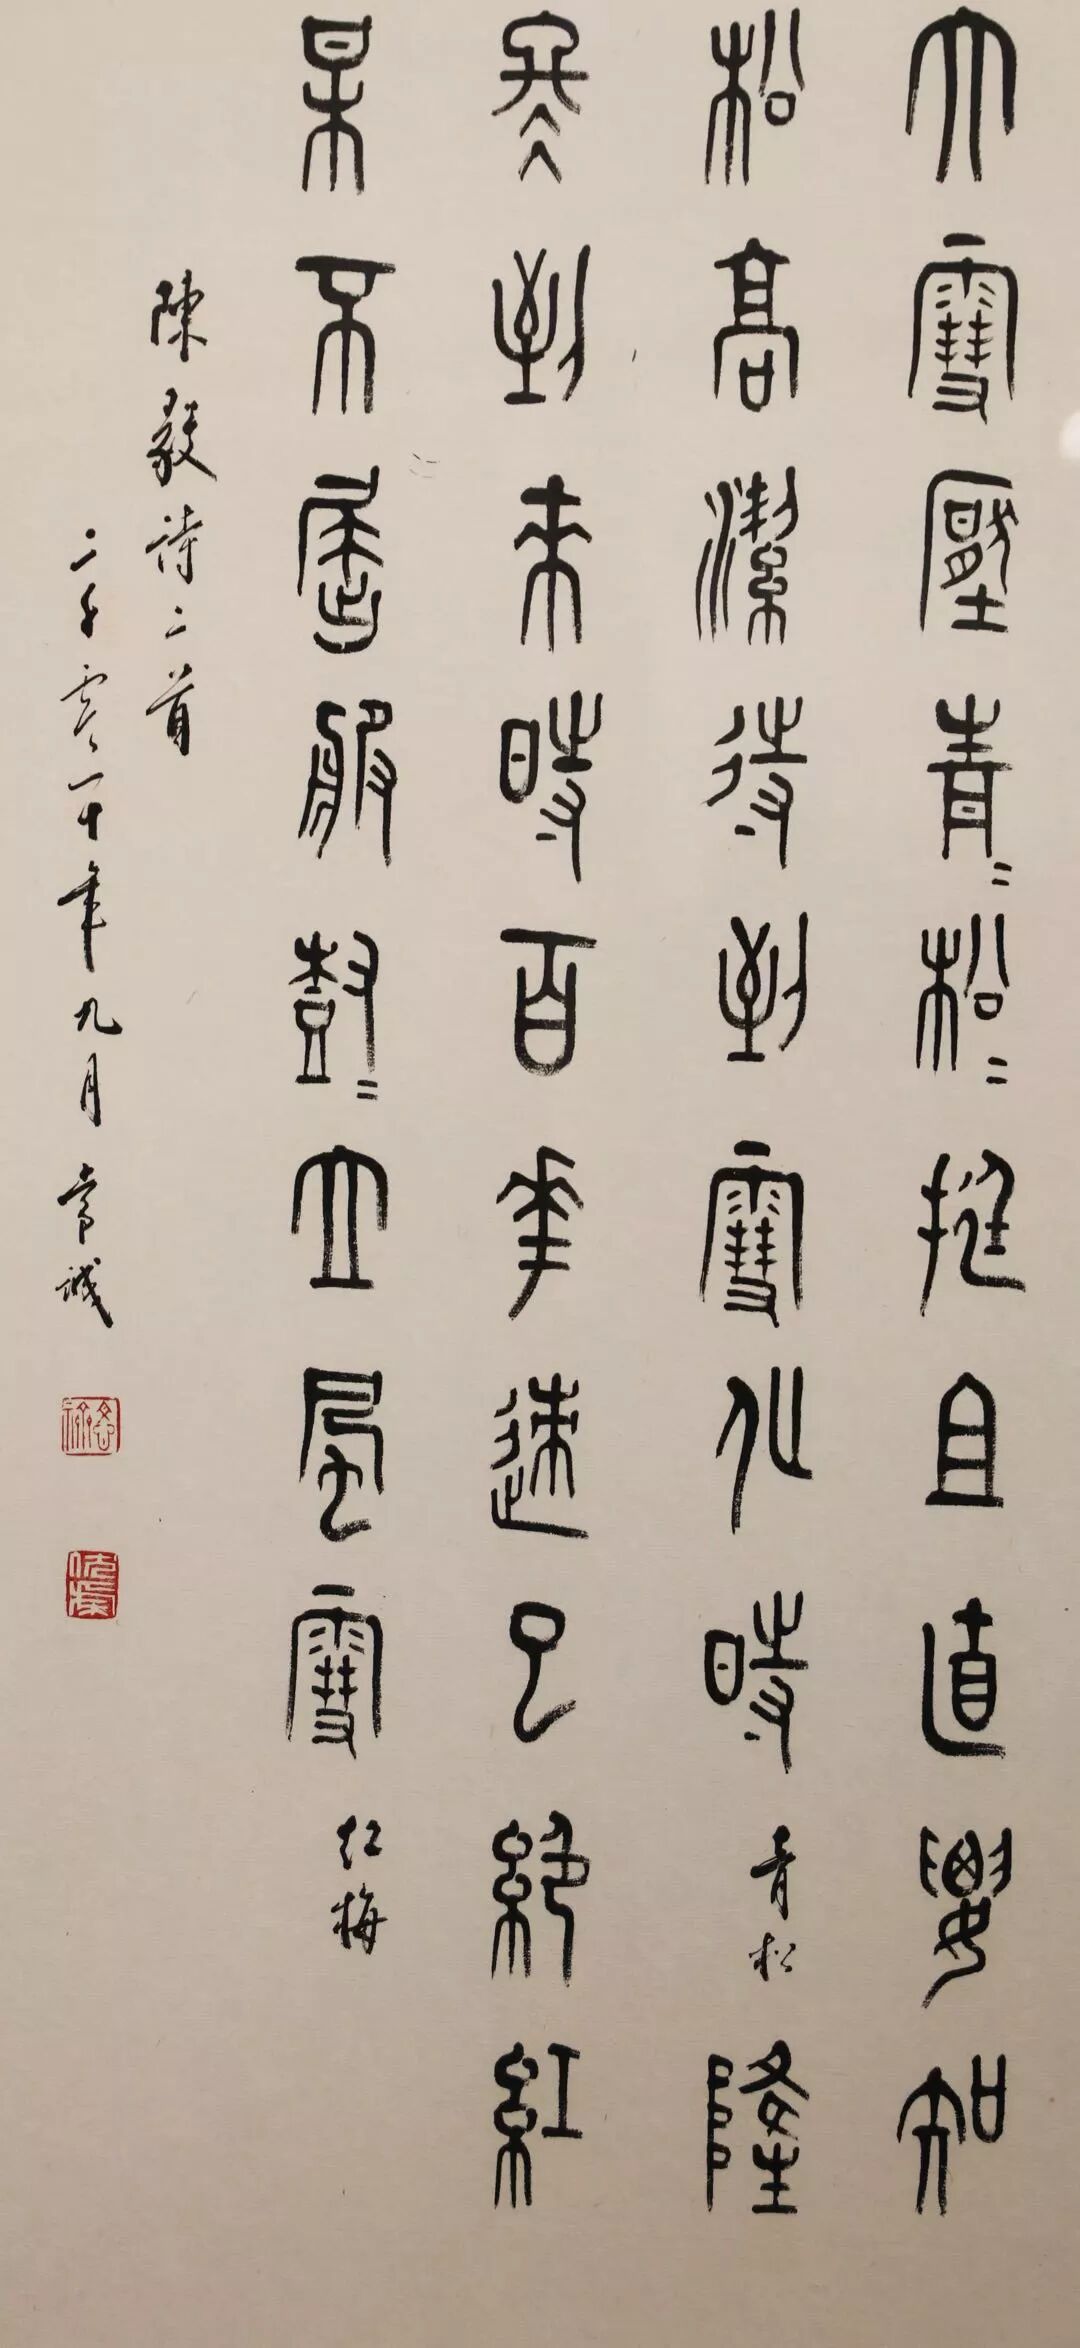 大雪壓青=松=挺且直要知
松高潔待到雪化時 青松 隆
寒到來時百花迹已絕紅
某不屈服尌=立風雪 红梅
陳毅詩二首
二千零二十年九月 常诚